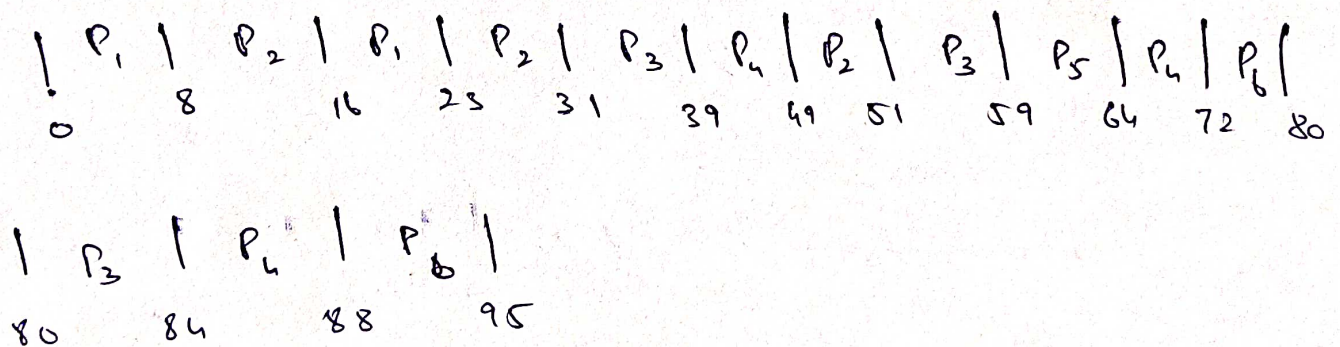 | P₁ | P₂ | P₁ | P₂ | P₃ | P₄ | P₂ | P₃ | P₅ | P₄ | P₆ |
0 8 16 23 31 39 49 51 59 64 72 80
| P₃ | P₄ | P₆ |
80 84 88 95